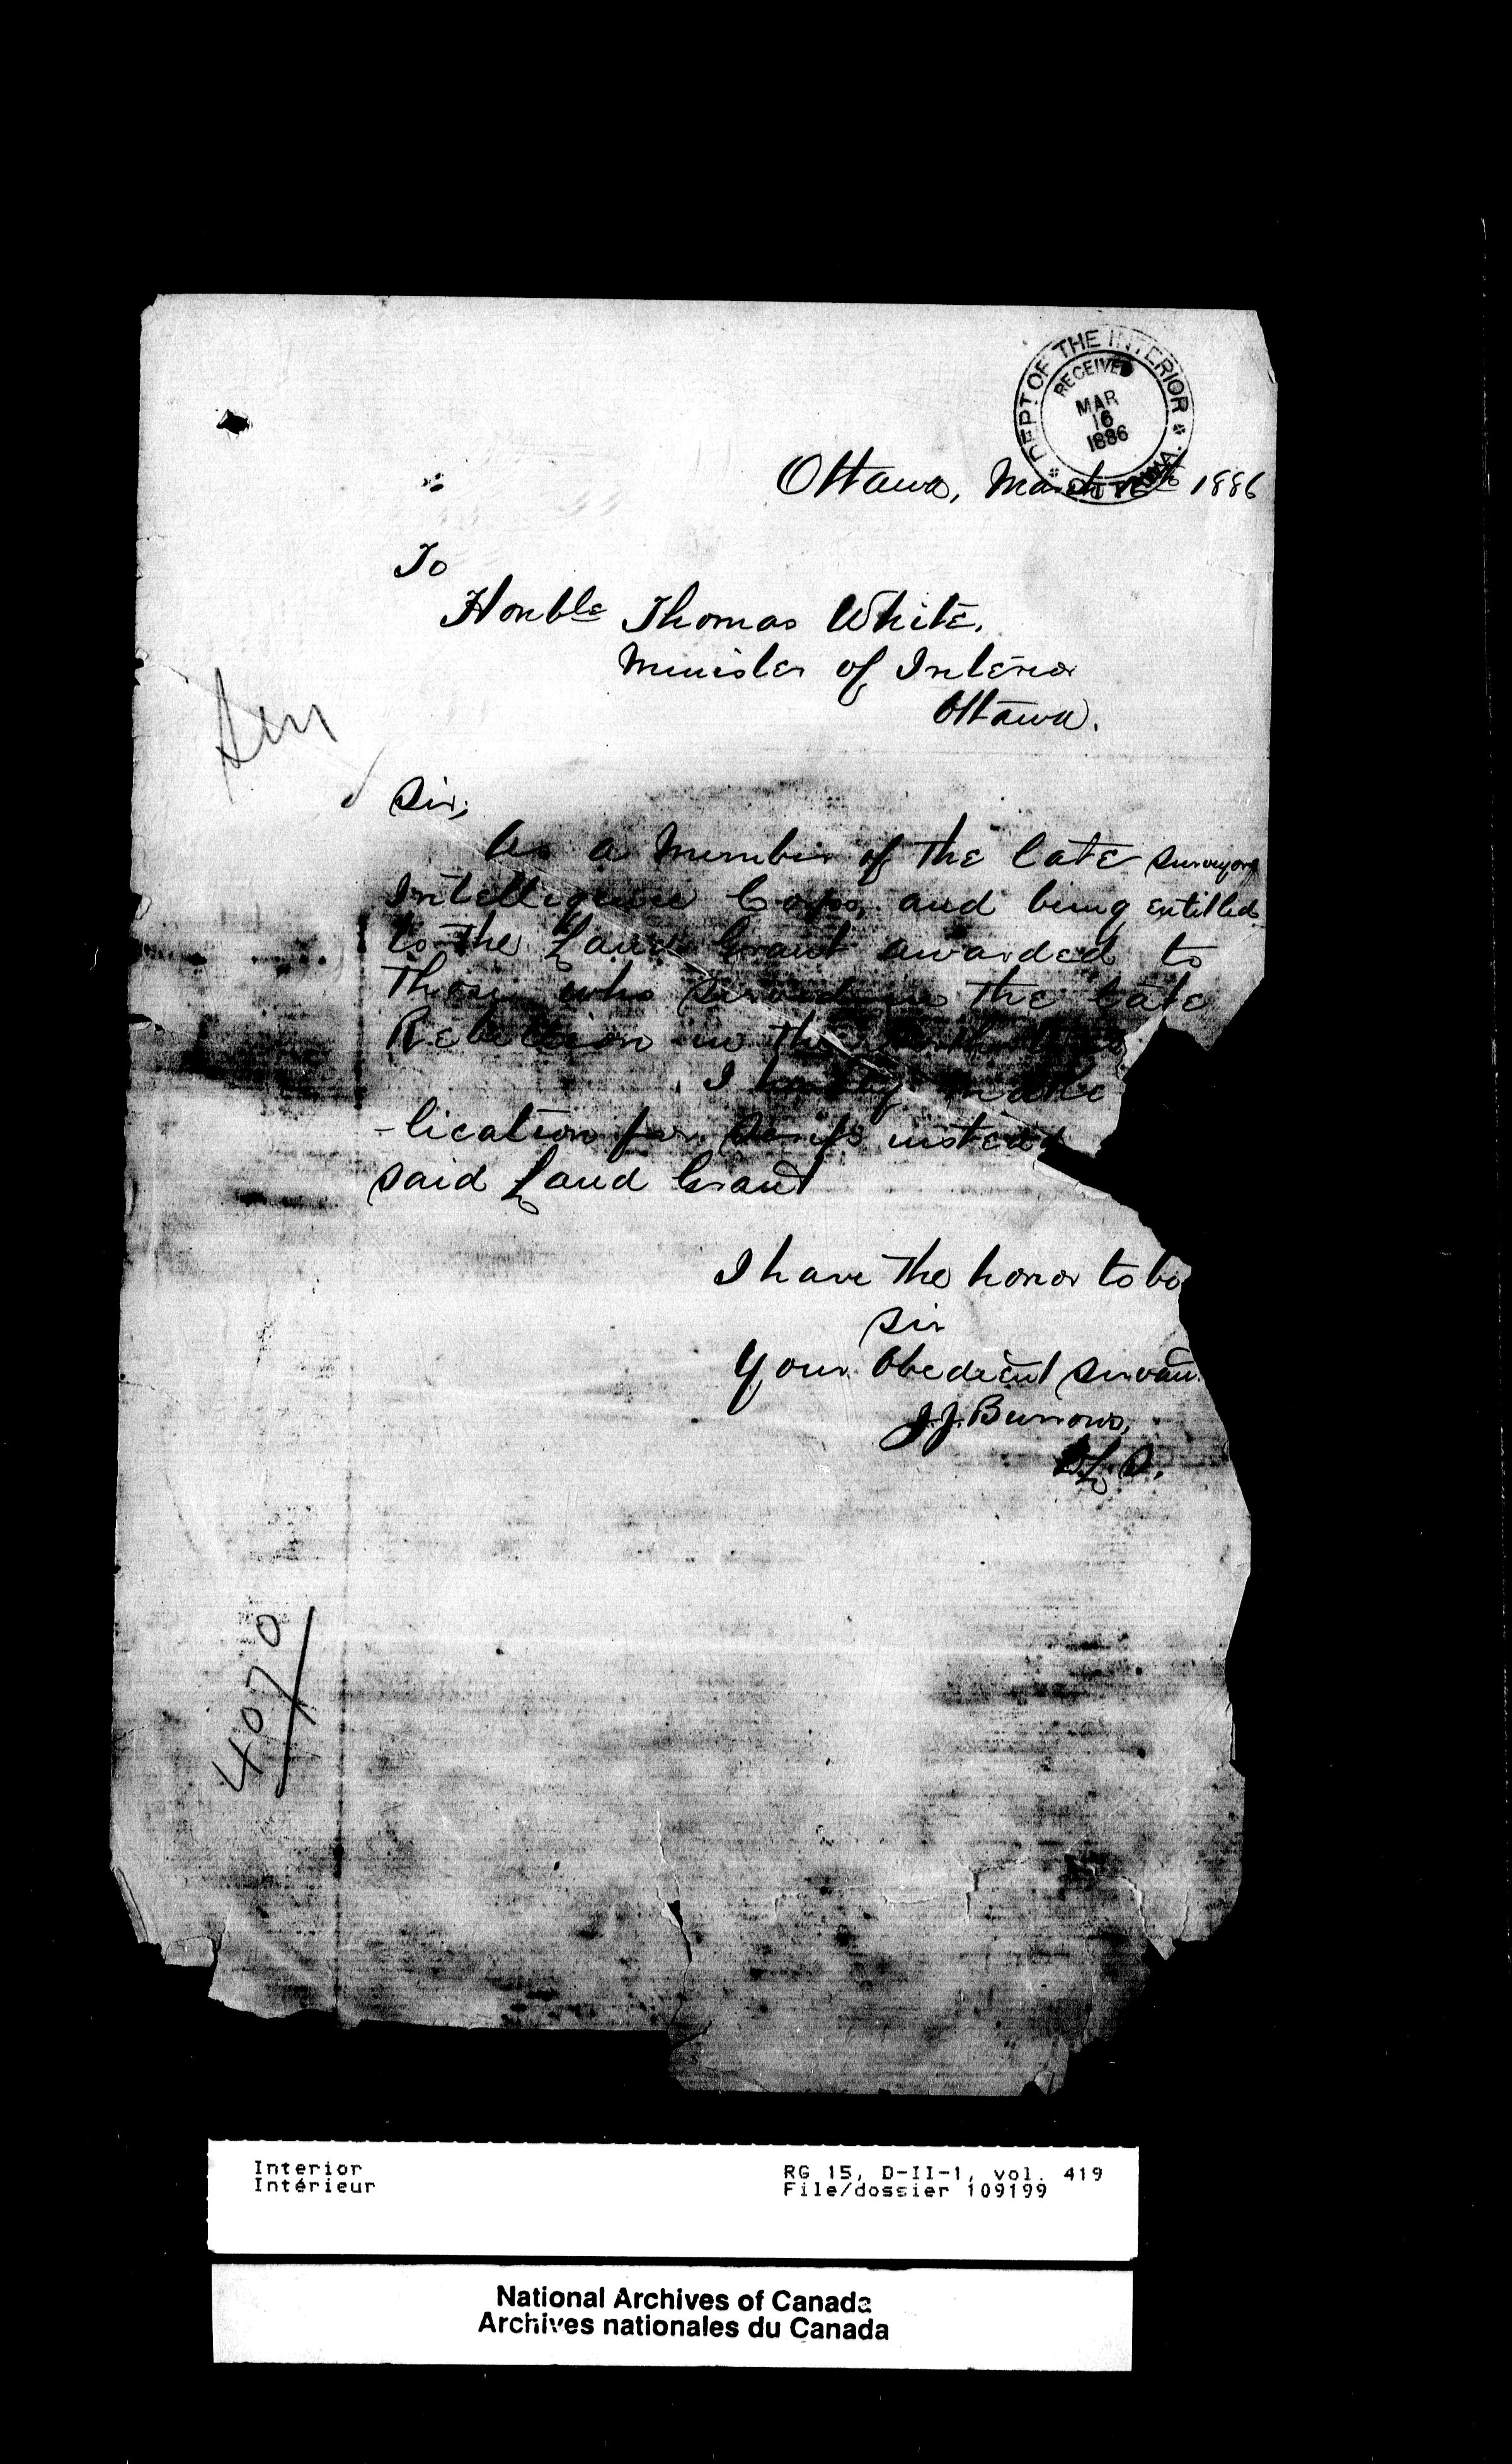 DEPT OF THE INTERIOR
RECEIVED
MAR
16
1886
OTTAWA
Ottawa, March 16th 1886
To
Honble Thomas White.
Minister of Interior
Ottawa.
Sir,
As a Member of the late Surveyors
Intelligence Corps, and being entitled
to the Land Grant awarded to
Those who served in the late
Rebellion in the
I hereby make
-lication for Scrip instead
said Land Grant
I have the honor to be
Sir
Your Obedient Servan
J.J. Burrows,
D.L.S.
4070
Interior
Intérieur
RG 15, D-II-1, vol. 419
File/dossier 109199
National Archives of Canada
Archives nationales du Canada